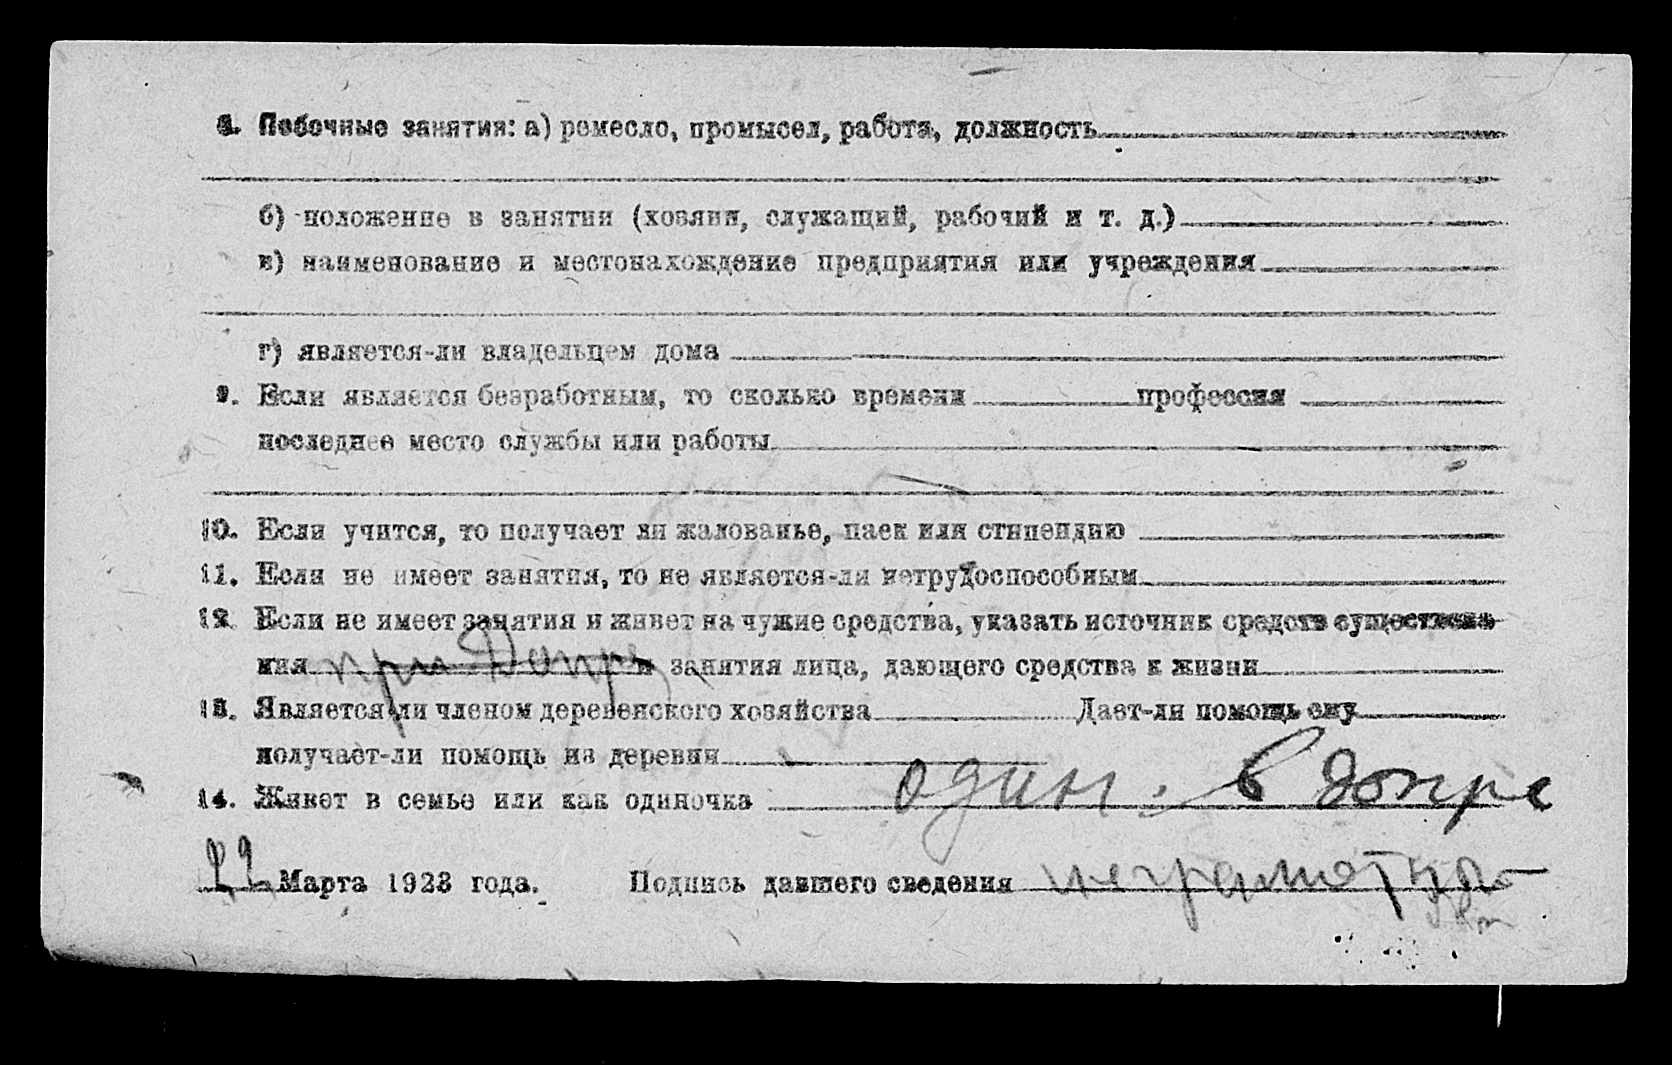 8. Побочные занятия: а) ремесло, промысел, работа, должность
б) положение в занятии (хозяин, служащий, рабочий и т. д.)
в) наименование и местонахождение предприятия или учреждения
г) является-ли владельцем дома
9. Если является безработным, то сколько времени профессия
последнее место службы или работы
10. Если учится, то получает ли жалованье, паек или стипендию
11. Если не имеет занятия, то не является-ли нетрудоспособным
12. Если не имеет занятия и живет на чужие средства, указать источник средств существова-
ния при Допре и занятия лица, дающего средства к жизни
13. Является ли членом деревенского хозяйства Дает-ли помощь ему
получает-ли помощь из деревни
14. Живет в семье или как одиночка один. в допре
22 Марта 1923 года. Подпись давшего сведения неграмотный